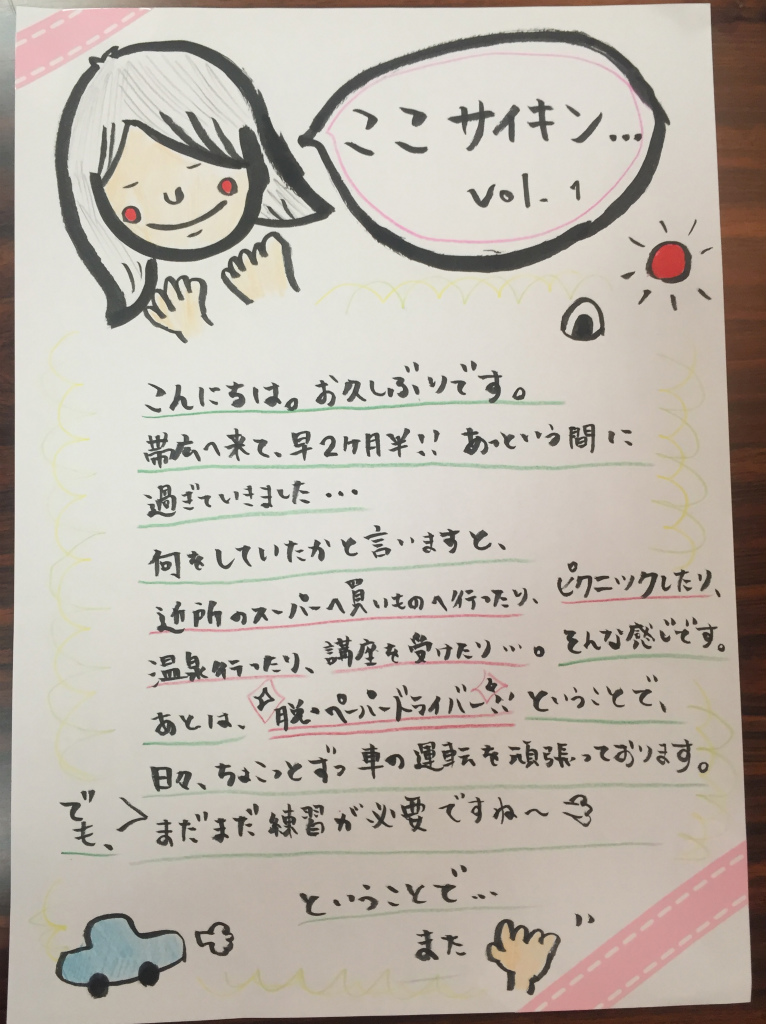 ここサイキン...
vol. 1
こんにちは。お久しぶりです。
帯広へ来て、早2ヶ月半!! あっという間に
過ぎていきました…
何をしていたかと言いますと、
近所のスーパーへ買いものへ行ったり、ピクニックしたり、
温泉行ったり、講座を受けたり…。そんな感じです。
あとは、脱・ペーパードライバー!! ということで、
日々、ちょこっとずつ車の運転を頑張っております。
でも、まだまだ練習が必要ですね〜
ということで...
また